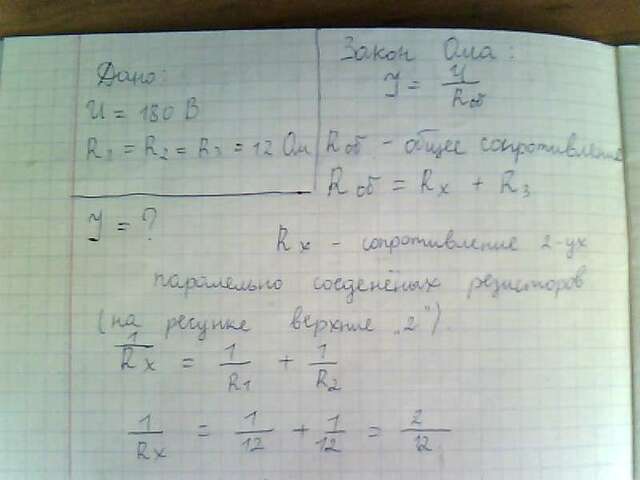 Дано:
U = 180 В
R1 = R2 = R3 = 12 Ом
У = ?
Закон Ома:
У = U / Rоб
Rоб - общее сопротивление
Rоб = Rx + R3
Rx - сопротивление 2-ух
паралельно соеденёных резисторов
(на ресунке верхние „2").
1/Rx = 1/R1 + 1/R2
1/Rx = 1/12 + 1/12 = 2/12